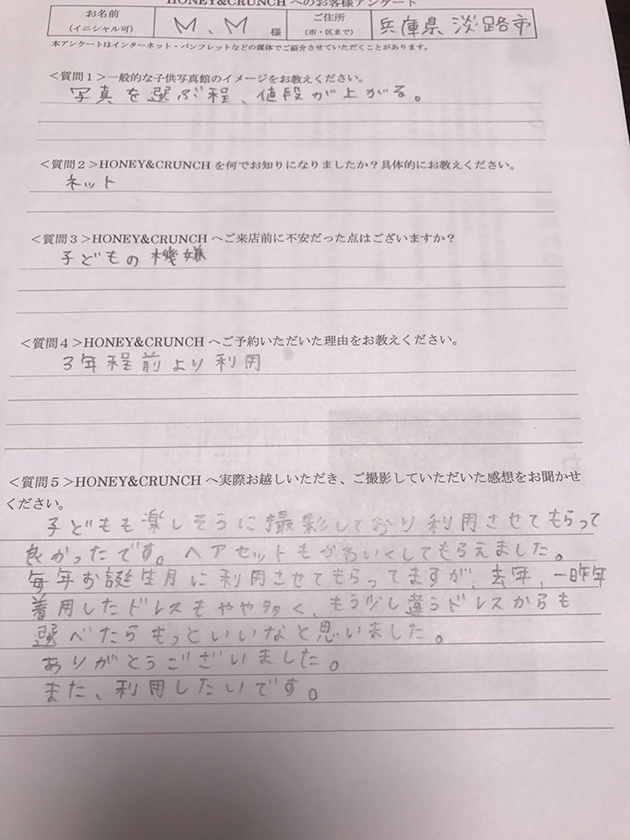 HONEY&CRUNCH へのお客様アンケート
お名前
(イニシャル可)
M.M 様
ご住所
(市・区まで)
兵庫県 淡路市
本アンケートはインターネット・パンフレットなどの媒体でご紹介させていただくことがあります。
＜質問１＞一般的な子供写真館のイメージをお教えください。
写真を選ぶ程、値段が上がる。
＜質問２＞HONEY&CRUNCH を何でお知りになりましたか？具体的にお教えください。
ネット
＜質問３＞HONEY&CRUNCH へご来店前に不安だった点はございますか？
子どもの機嫌
＜質問４＞HONEY&CRUNCH へご予約いただいた理由をお教えください。
3年程前より利用
＜質問５＞HONEY&CRUNCH へ実際お越しいただき、ご撮影していただいた感想をお聞かせ
ください。
子どもも楽しそうに撮影しており利用させてもらって
良かったです。ヘアセットもかわいくしてもらえました。
毎年お誕生月に利用させてもらってますが、去年、一昨年
着用したドレスもやや多く、もう少し違うドレスからも
選べたらもっといいなと思いました。
ありがとうございました。
また、利用したいです。